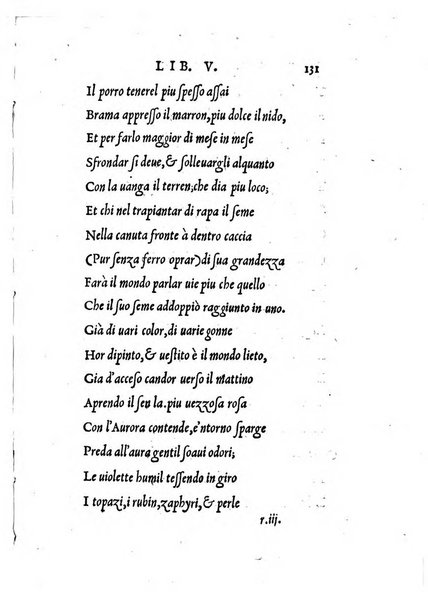 LIB. V. 131
Il porro tenerel piu ſpeſſo aſſai
Brama appreſſo il marron, piu dolce il nido,
Et per farlo maggior di meſe in meſe
Sfrondar ſi deue, & ſolleuargli alquanto
Con la uanga il terren; che dia piu loco;
Et chi nel trapiantar di rapa il ſeme
Nella canuta fronte à dentro caccia
(Pur ſenza ferro oprar) di ſua grandezza
Farà il mondo parlar uie piu che quello
Che il ſuo ſeme addoppiò raggiunto in uno.
Già di uari color, di uarie gonne
Hor dipinto, & ueſtito è il mondo lieto,
Gia d'acceſo candor uerſo il Mattino
Aprendo il ſen la. piu uezzoſa roſa
Con l'Aurora contende, e'ntorno ſparge
Preda all'aura gentil ſoaui odori;
Le uiolette humil teſſendo in giro
I topazi, i rubin, zaphyri, & perle
r.iij.